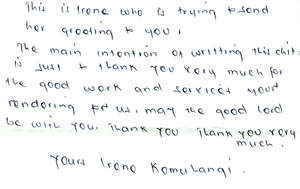 This is Irene who is trying to send
her greeting to you,
The main intention of writting this chit
is just to thank you very much for
the good work and services your
rendering for us, may the good lord
be with you. Thank you thank you very
much.
Yours Irene Komuhangi.